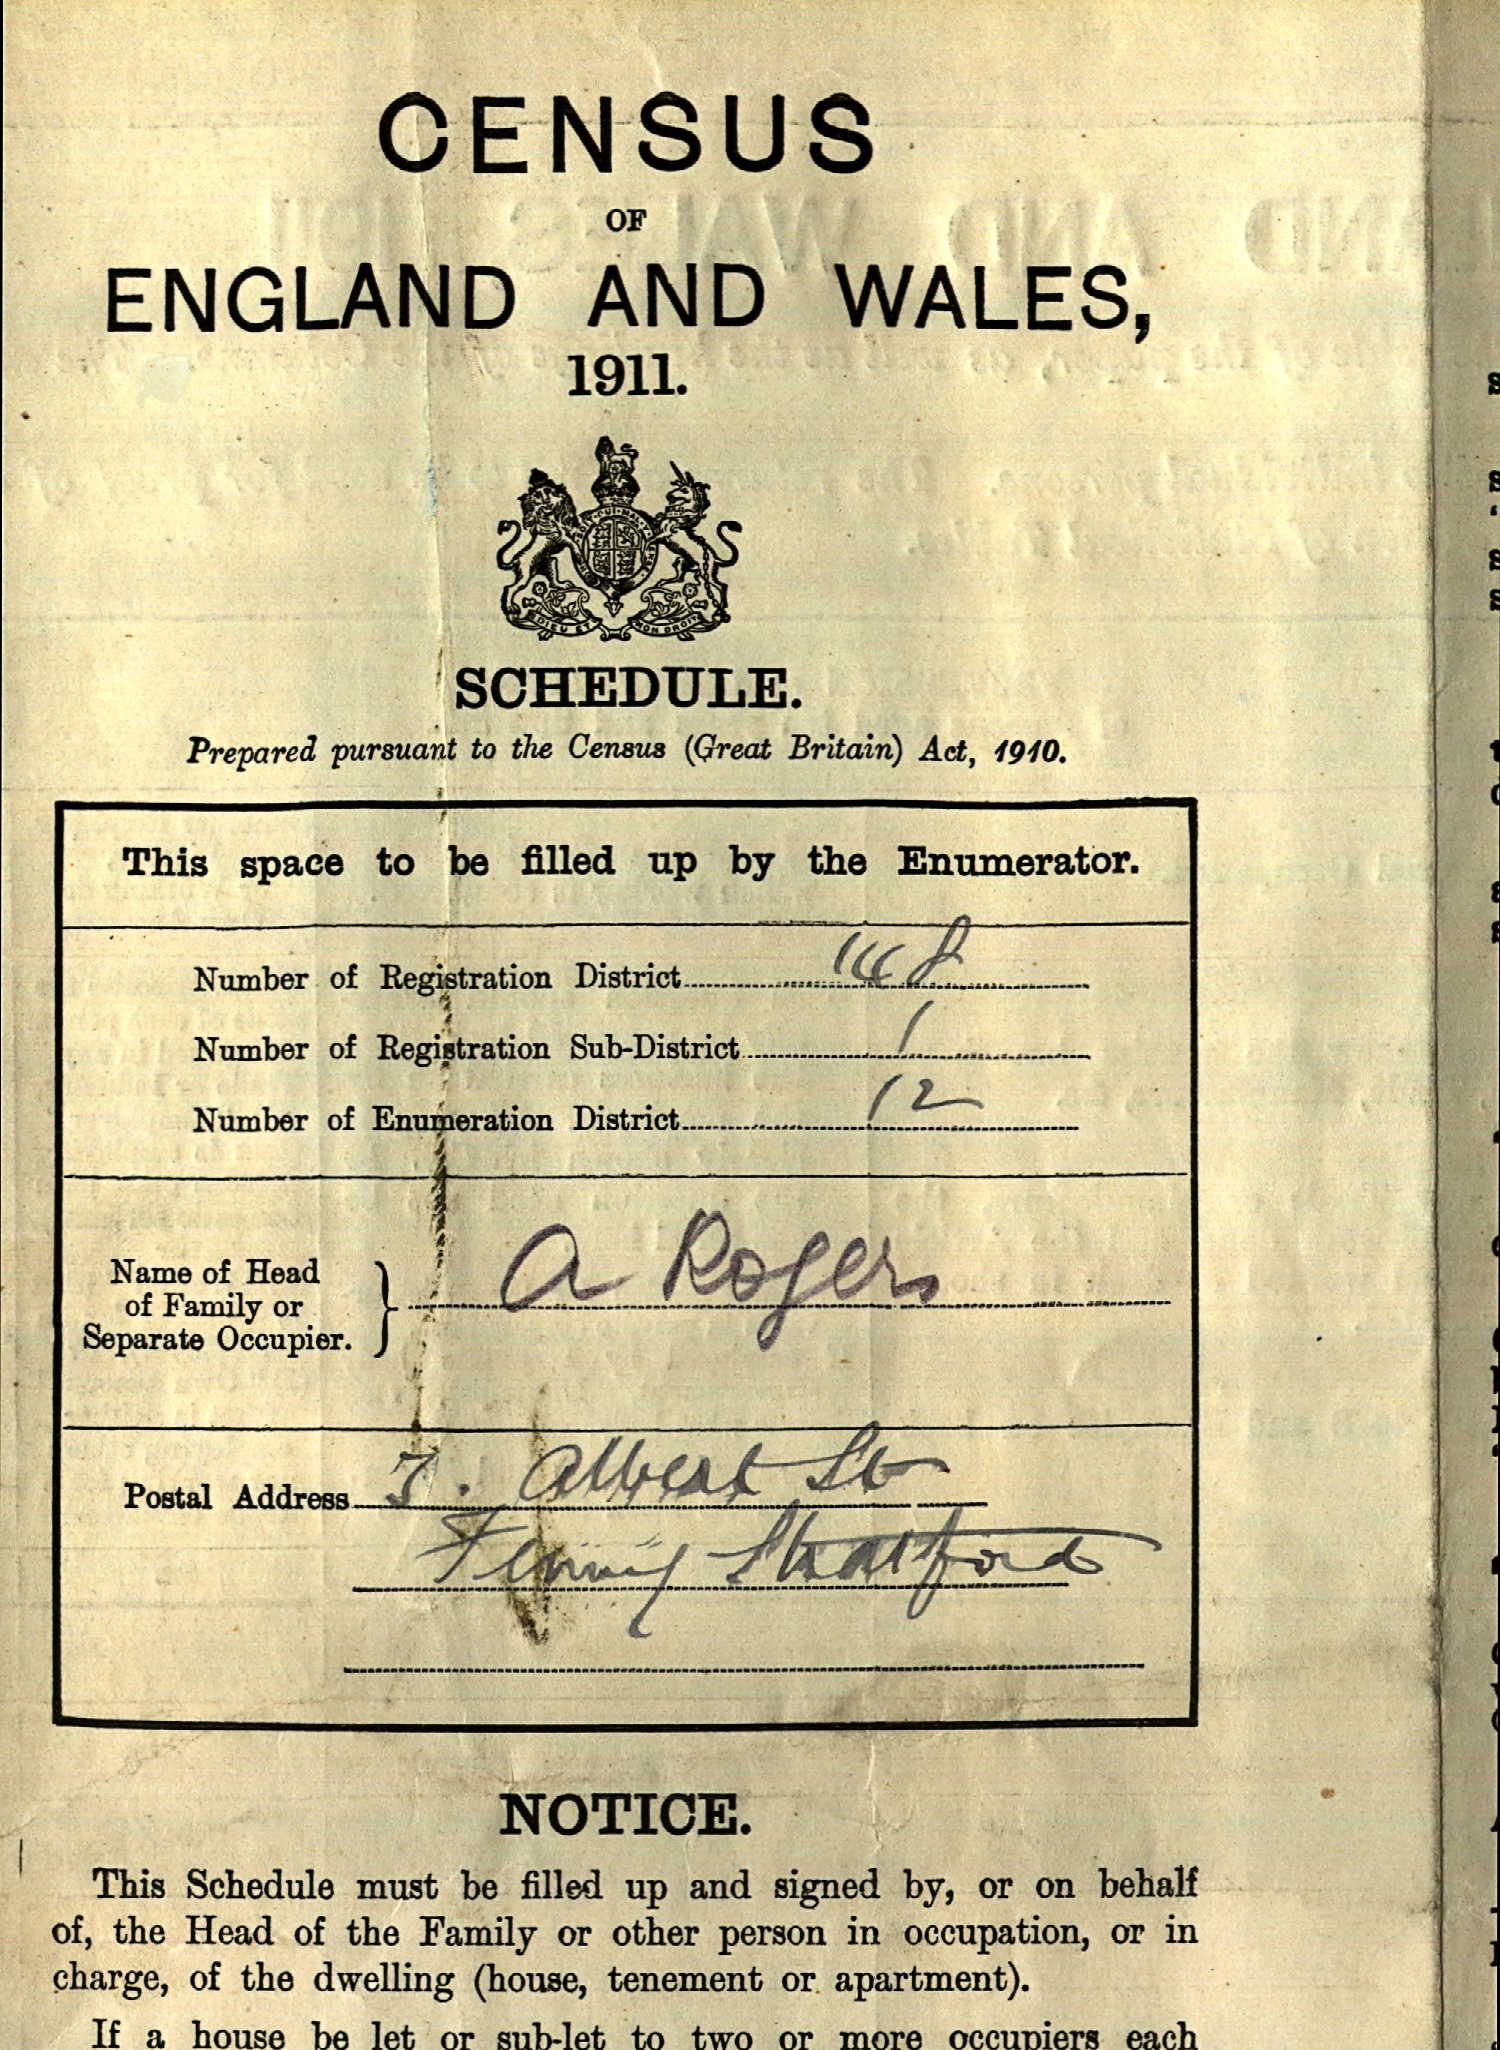 CENSUS
OF
ENGLAND AND WALES,
1911.
DIEU ET MON DROIT
SCHEDULE.
Prepared pursuant to the Census (Great Britain) Act, 1910.
This space to be filled up by the Enumerator.
Number of Registration District 148
Number of Registration Sub-District 1
Number of Enumeration District 12
Name of Head
of Family or
Separate Occupier.
A Rogers
Postal Address 7. Albert St
Fenny Stratford
NOTICE.
This Schedule must be filled up and signed by, or on behalf
of, the Head of the Family or other person in occupation, or in
charge, of the dwelling (house, tenement or apartment).
If a house be let or sub-let to two or more occupiers each